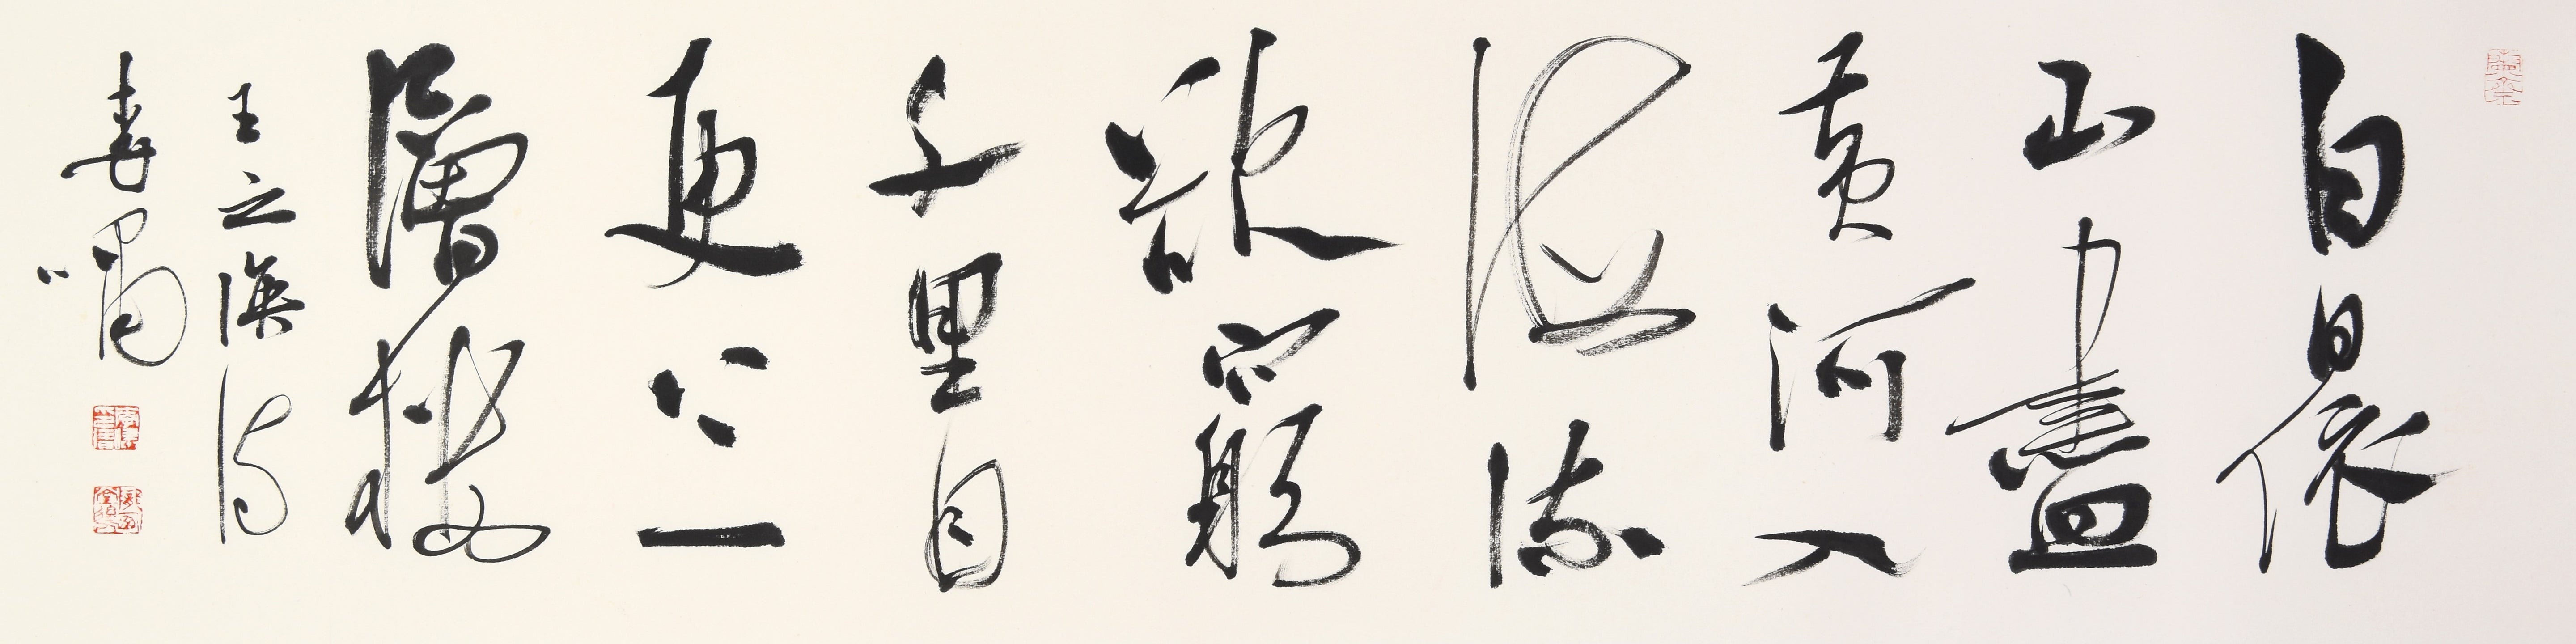 白日依
山盡
黃河入
海流
欲窮
千里目
更上一
層樓
王之渙詩